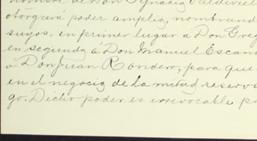 nombre de Don Ignacio Valdiviel
otorgará poder amplio, nombrand
suyos, en primer lugar a Don Greg
en segunda a Don Manuel Escan
a Don Juan Rondero, para que
en el negocio de la mitad reserv
go. Dicho poder es irrevocable p